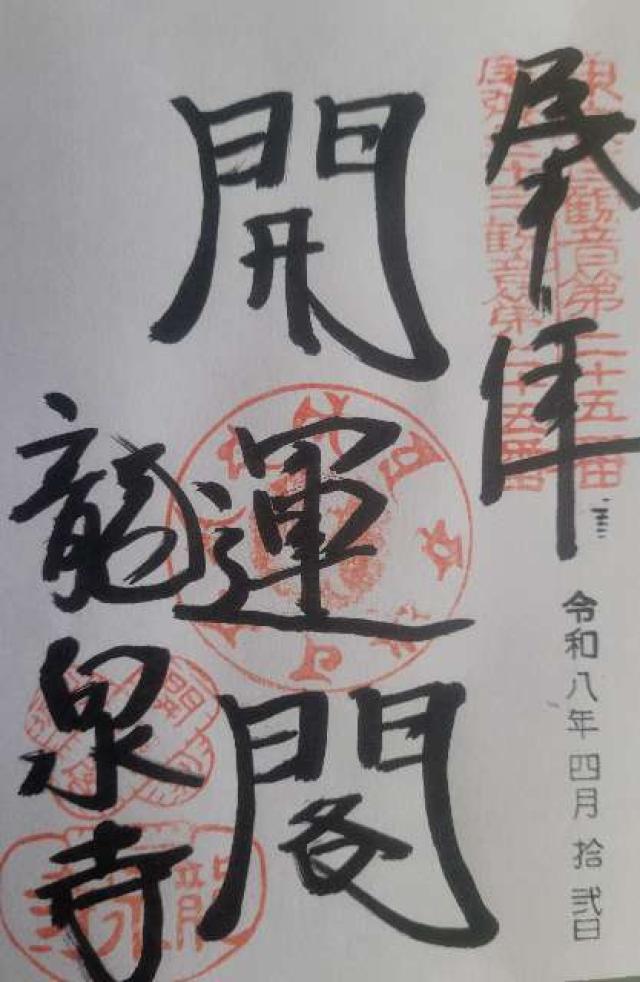 奉拝
観音第二十五番
尾張三十三観音第二十五番
令和八年四月拾弐日
開運閣
龍泉寺